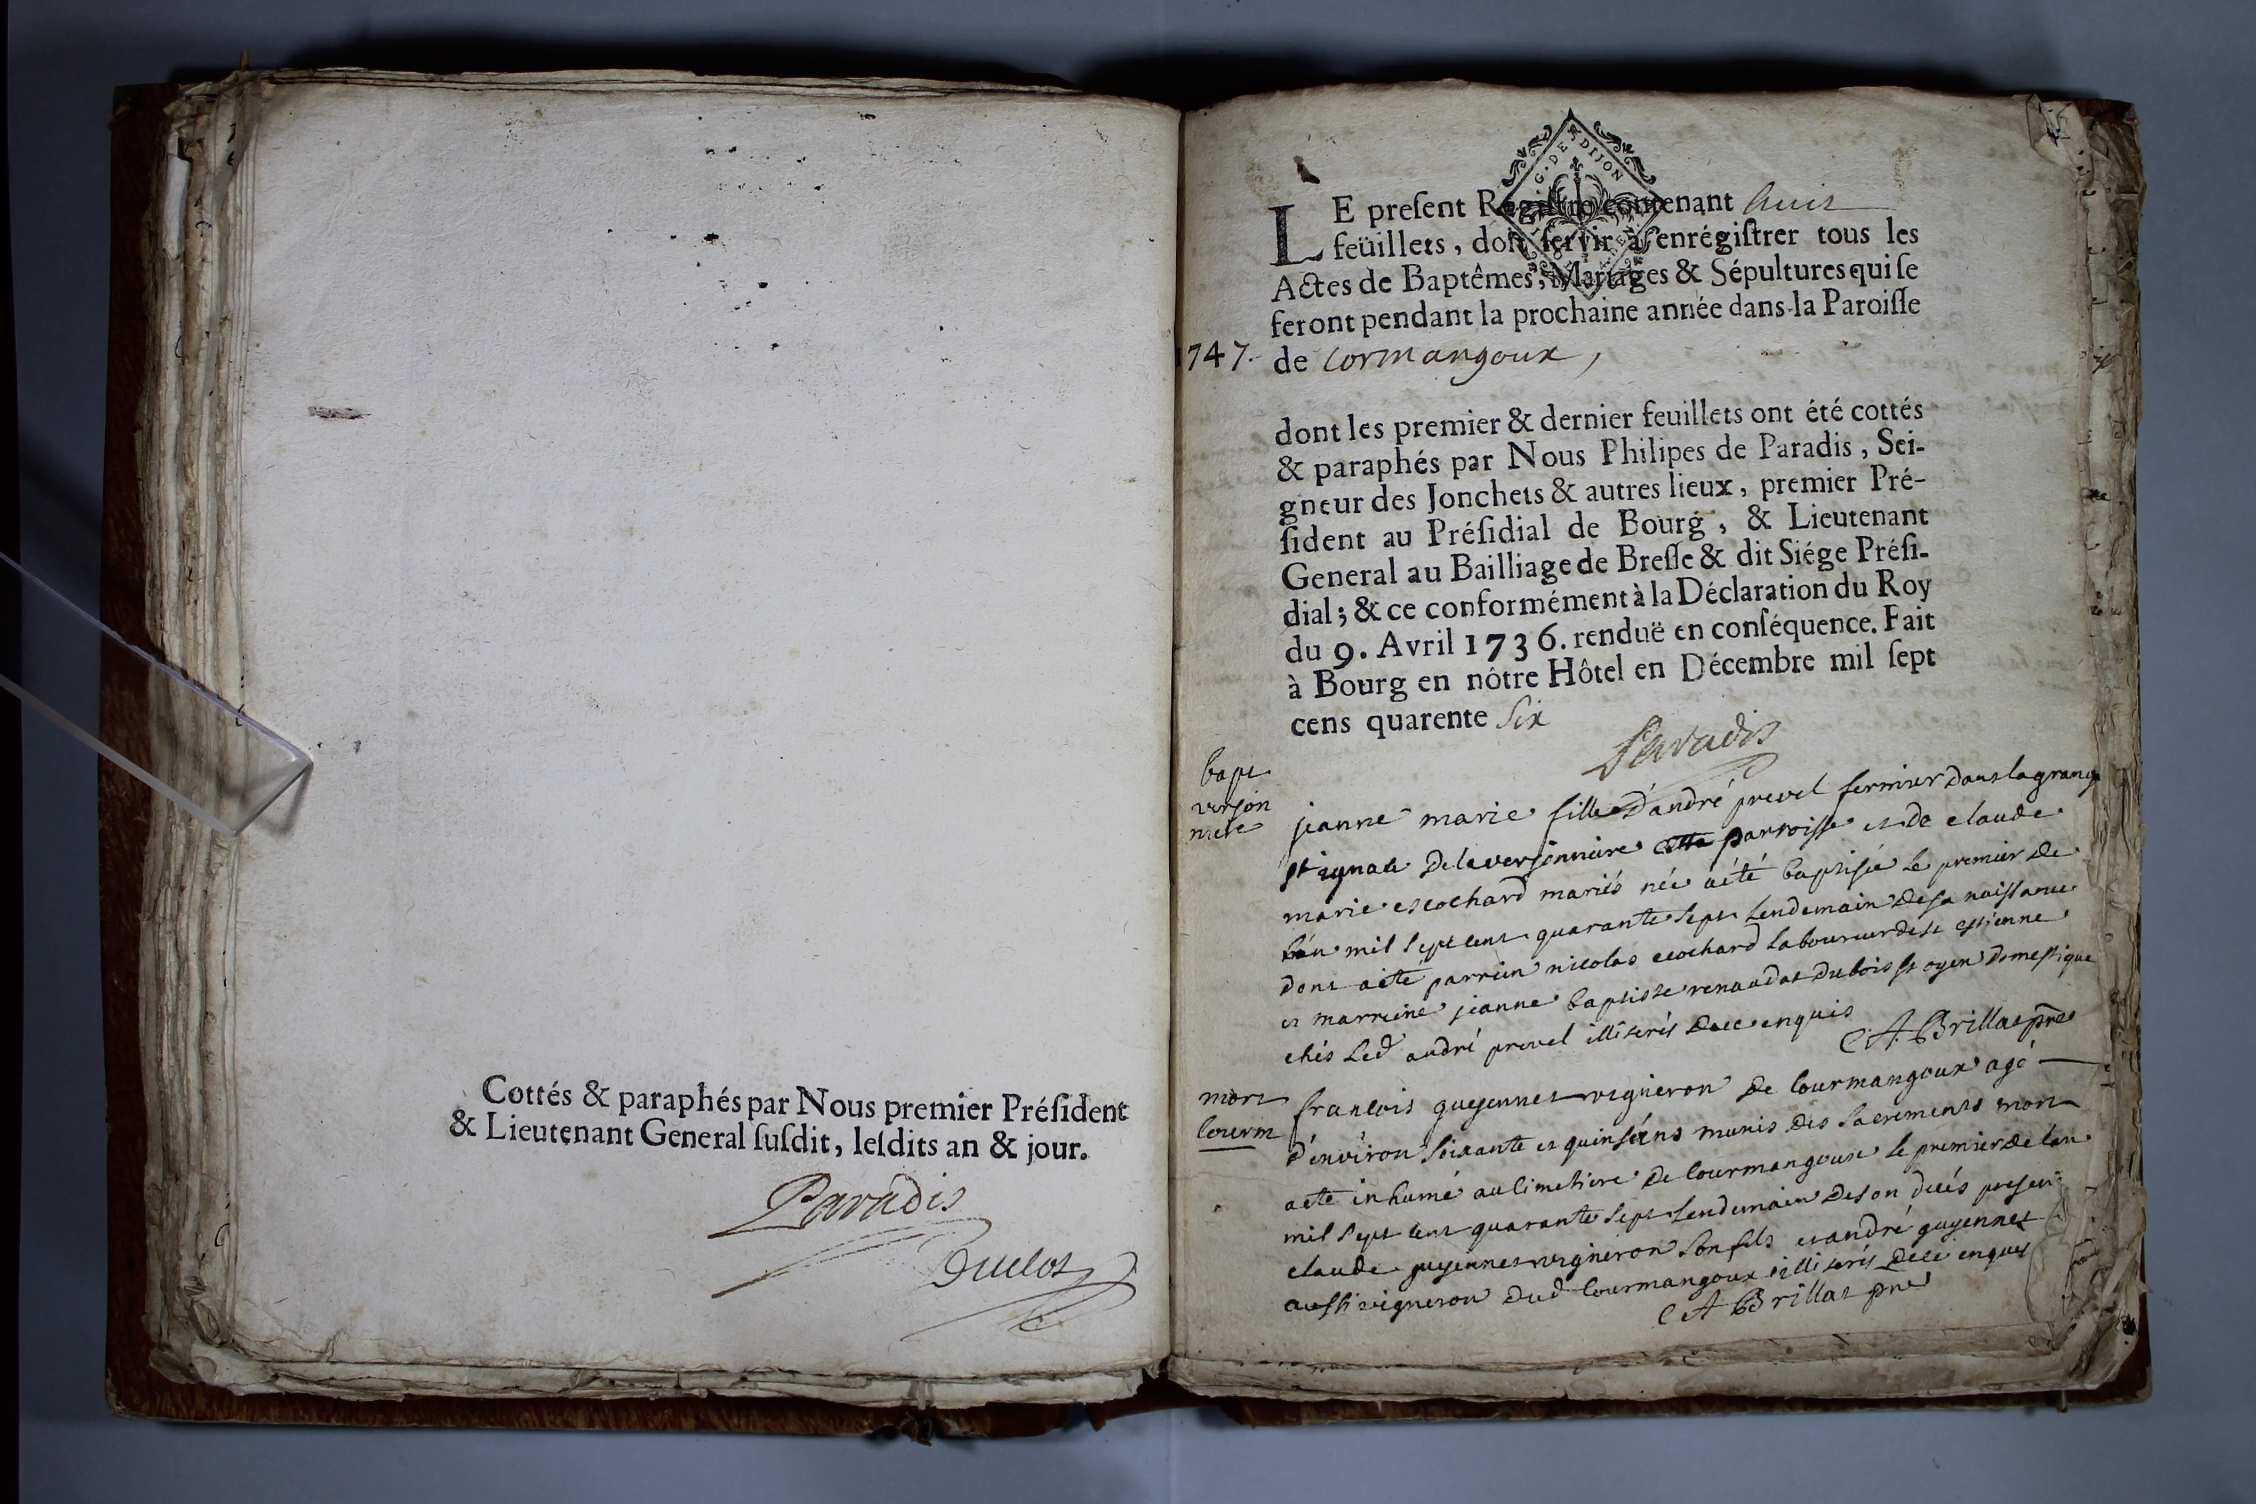 Cottés & paraphés par Nous premier Président
& Lieutenant General ſuſdit, leſdits an & jour.
Paradis
Duclos
G. DE DIJON
LE preſent Regiſtre contenant huit
feüillets, doit ſervir à enrégiſtrer tous les
Actes de Baptêmes, Mariages & Sépultures qui ſe
feront pendant la prochaine année dans la Paroiſſe
1747. de Cormangoux,
dont les premier & dernier feuillets ont été cottés
& paraphés par Nous Philipes de Paradis, Sei-
gneur des Jonchets & autres lieux, premier Pré-
ſident au Préſidial de Bourg, & Lieutenant
General au Bailliage de Breſſe & dit Siége Préſi-
dial; & ce conformément à la Déclaration du Roy
du 9. Avril 1736. renduë en conſéquence. Fait
à Bourg en nôtre Hôtel en Décembre mil ſept
cens quarente six
Paradis
bapt
verjon
niere
jeanne marie fille d'andré prevel fermier dans la grange
st ignace de la verjonniere paroisse et de claude
marie escochard mariés née a été baptisée le premier de
l'an mil sept cent quarante sept lendemain de sa naissance
dont a été parrain nicolas ecochard laboureur de st estienne
et marreine jeanne baptiste renaudat du bois st oyen domestique
chés led andré prevel illiterés de ce enquis
C A Brillat pre
mort
courm
francois guyennet vigneron de courmangoux agé
d'environ soixante et quinse ans munis des sacrements mort
a eté inhumé au cimetiere de courmangoux le premier de l'an
mil sept cent quarante sept lendemain de son decés presen
claude guyennet vigneron son fils et andré guyennet
aussi vigneron dud courmangoux illiterés de ce enquis
C A Brillat pre